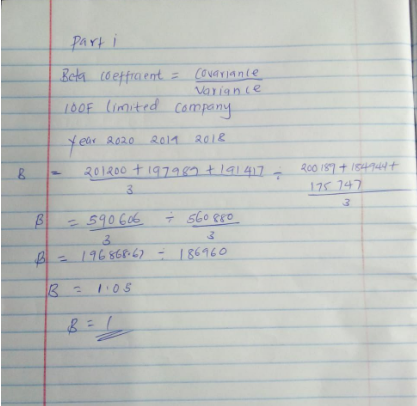 Part i
Beta coefficient = Covariance
Variance
100F limited company
Year 2020 2019 2018
B = 201200 + 197989 + 191417 ÷ 200189 + 184944 +
3
175 747
3
B = 590606 ÷ 560880
3 3
B = 196868.67 ÷ 186960
B = 1.05
B = 1